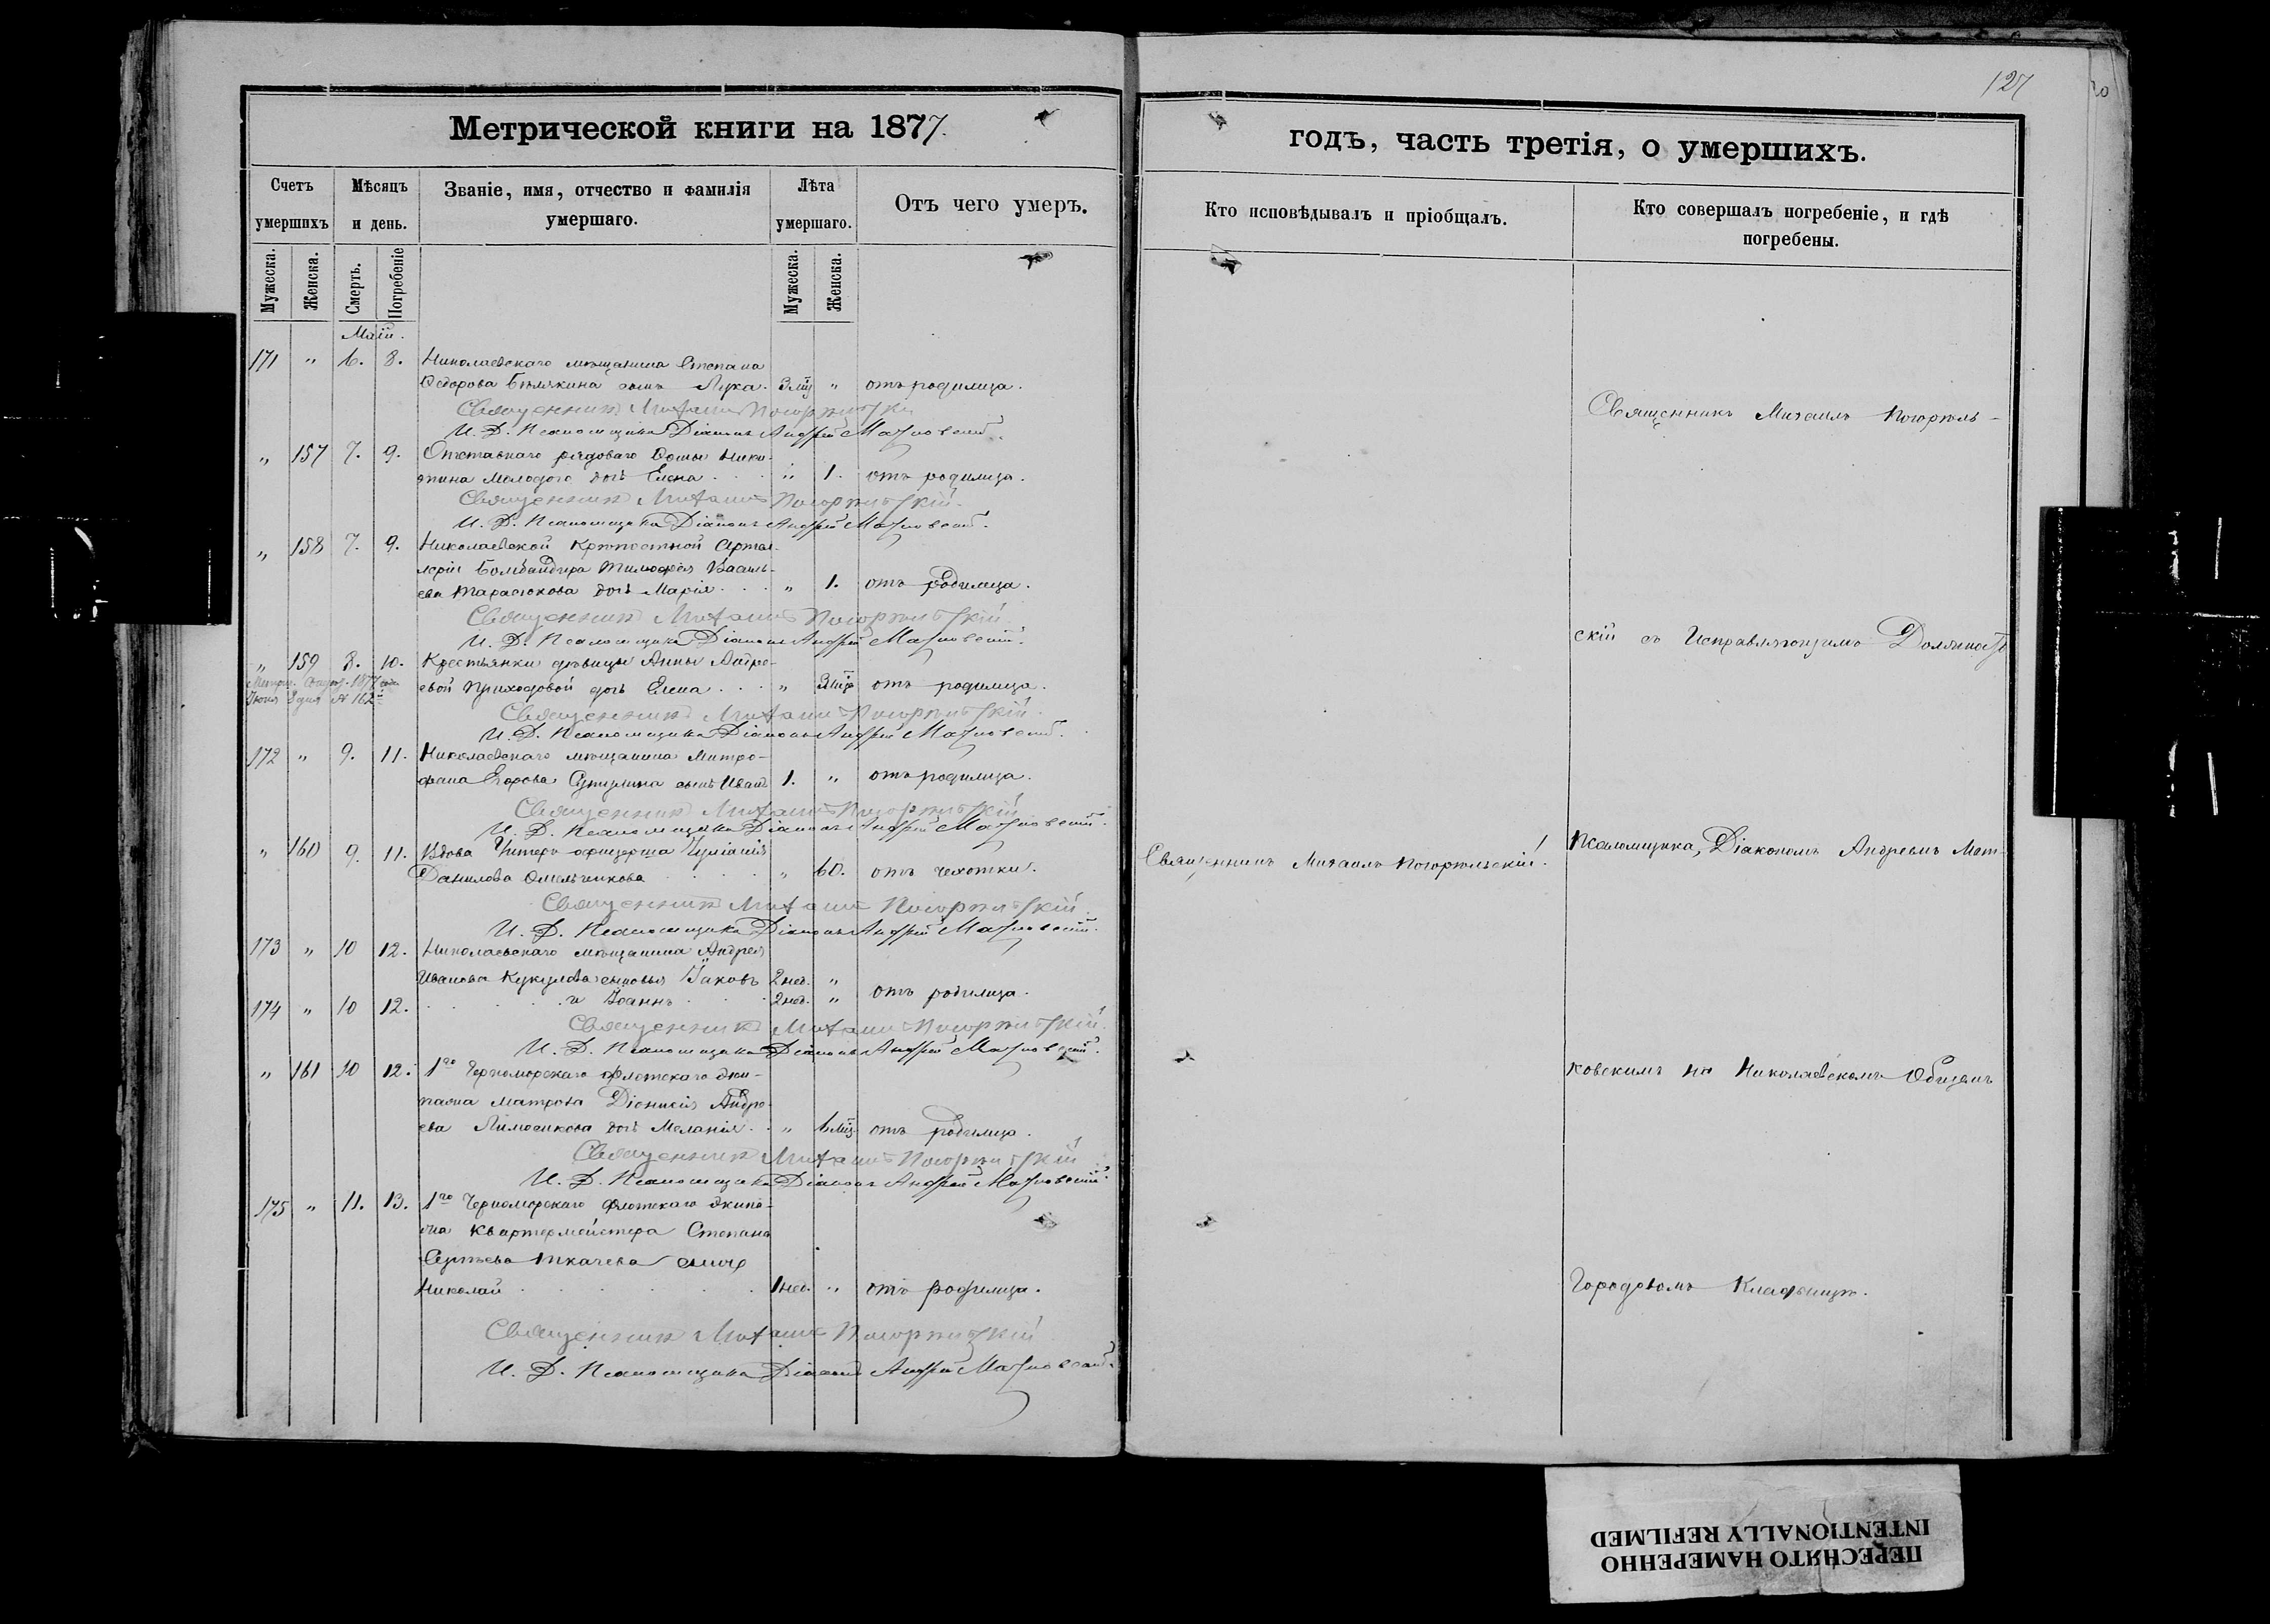 127
20
Метрической книги на 1877.
годъ, часть третія, о умершихъ.
Счетъ умершихъ
Мѣсяцъ и день.
Званіе, имя, отчество и фамилія умершаго.
Лѣта умершаго.
Отъ чего умеръ.
Кто исповѣдывалъ и пріобщалъ.
Кто совершалъ погребеніе, и гдѣ погребены.
Мужеска.
Женска.
Смерть.
Погребеніе
Мужеска.
Женска.
Маій.
171 " 6. 8. Николаевскаго мѣщанина Степана
Ѳедорова Бѣлякина сынъ Лука. 3 мц " отъ родимца.
Священникъ Михаилъ Погорѣльскій
И. Д. Псаломщика Діаконъ Андрей
" 157 7. 9. Отставнаго рядоваго Ѳомы Ники-
тина Молодого дочь Елена . . . " 1. отъ родимца.
Священникъ Михаилъ Погорѣльскій.
И. Д. Псаломщика Діаконъ Андрей
" 158 7. 9. Николаевской Крѣпостной Артил-
леріи Бомбандира Тимофея Василь-
ева Тарасюкова дочь Марія . . . " 1. отъ родимца.
Священникъ Михаилъ Погорѣльскій
И. Д. Псаломщика Діаконъ Андрей
" 159 8. 10. Крестьянки дѣвицы Анны Андре-
евой Приходовой дочь Елена . . . " отъ родимца.
1877
Іюня дня № 162
Священникъ Михаилъ Погорѣльскій.
И. Д. Псаломщика Діаконъ Андрей
172 " 9. 11. Николаевскаго мѣщанина Митро-
фана Егорова сынъ Иванъ 1. " отъ родимца.
Священникъ Михаилъ Погорѣльскій
И. Д. Псаломщика Діаконъ Андрей
" 160 9. 11. Вдова Унтеръ-офицерша Іуліанія
Данилова Омельченкова . . . . " 60. отъ чехотки.
Священникъ Михаилъ Погорѣльскій
И. Д. Псаломщика Діаконъ Андрей
173 " 10 12. Николаевскаго мѣщанина Андрея
Иванова сыновья Іаковъ 2 нед. "
174 " 10 12. . . . . и Іоаннъ . . . 2 нед. " отъ родимца.
Священникъ Михаилъ Погорѣльскій.
И. Д. Псаломщика Діаконъ Андрей
" 161 10 12. 1го Черноморскаго флотскаго эки-
пажа матроса Діонисія Андре-
ева дочь Меланія . . " 6 мц. отъ родимца.
Священникъ Михаилъ Погорѣльскій
И. Д. Псаломщика Діаконъ Андрей
175 " 11. 13. 1го Черноморскаго флотскаго экипа-
жа квартермейстера Степана
Сергѣева Ткачева сынъ
Николай . . . . . . 1 нед. " отъ родимца.
Священникъ Михаилъ Погорѣльскій
И. Д. Псаломщика Діаконъ Андрей
Священникъ Михаилъ Погорѣльскій.
Священникъ Михаилъ Погорѣль-
скій съ Исправляющимъ Должность
Псаломщика, Діакономъ Андреемъ Мат-
ковскимъ на Николаевскомъ Общемъ
Городовомъ Кладбищѣ.
ПЕРЕСНЯТО НАМЕРЕННО
INTENTIONALLY REFILMED